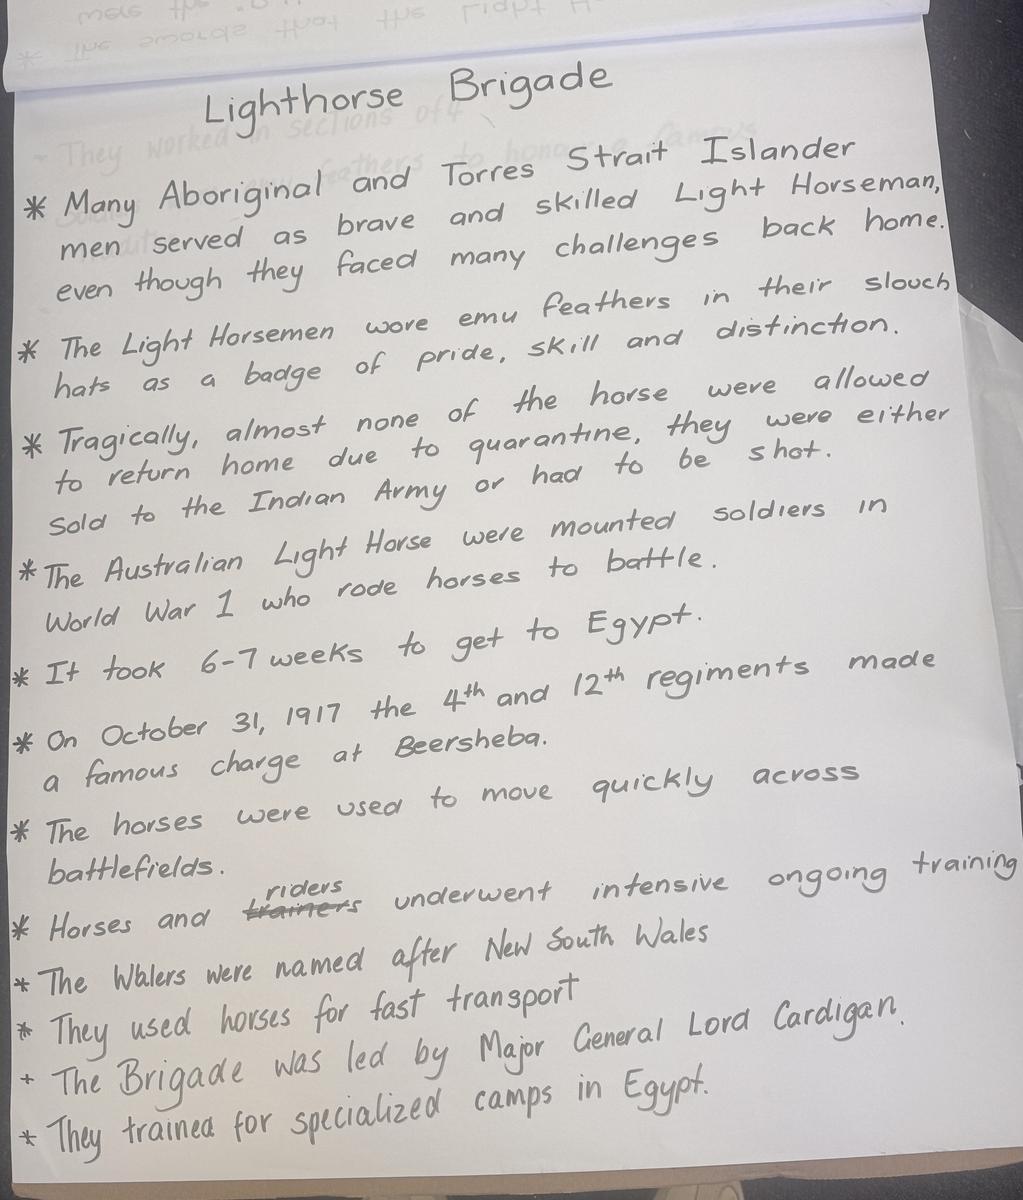 Lighthorse Brigade
* Many Aboriginal and Torres Strait Islander
men served as brave and skilled Light Horseman,
even though they faced many challenges back home.
* The Light Horsemen wore emu feathers in their slouch
hats as a badge of pride, skill and distinction.
* Tragically, almost none of the horse were allowed
to return home due to quarantine, they were either
sold to the Indian Army or had to be shot.
* The Australian Light Horse were mounted soldiers in
World War 1 who rode horses to battle.
* It took 6-7 weeks to get to Egypt.
* On October 31, 1917 the 4th and 12th regiments made
a famous charge at Beersheba.
* The horses were used to move quickly across
battlefields.
riders
* Horses and trainers underwent intensive ongoing training
* The Walers were named after New South Wales
* They used horses for fast transport
+ The Brigade was led by Major General Lord Cardigan.
* They trained for specialized camps in Egypt.